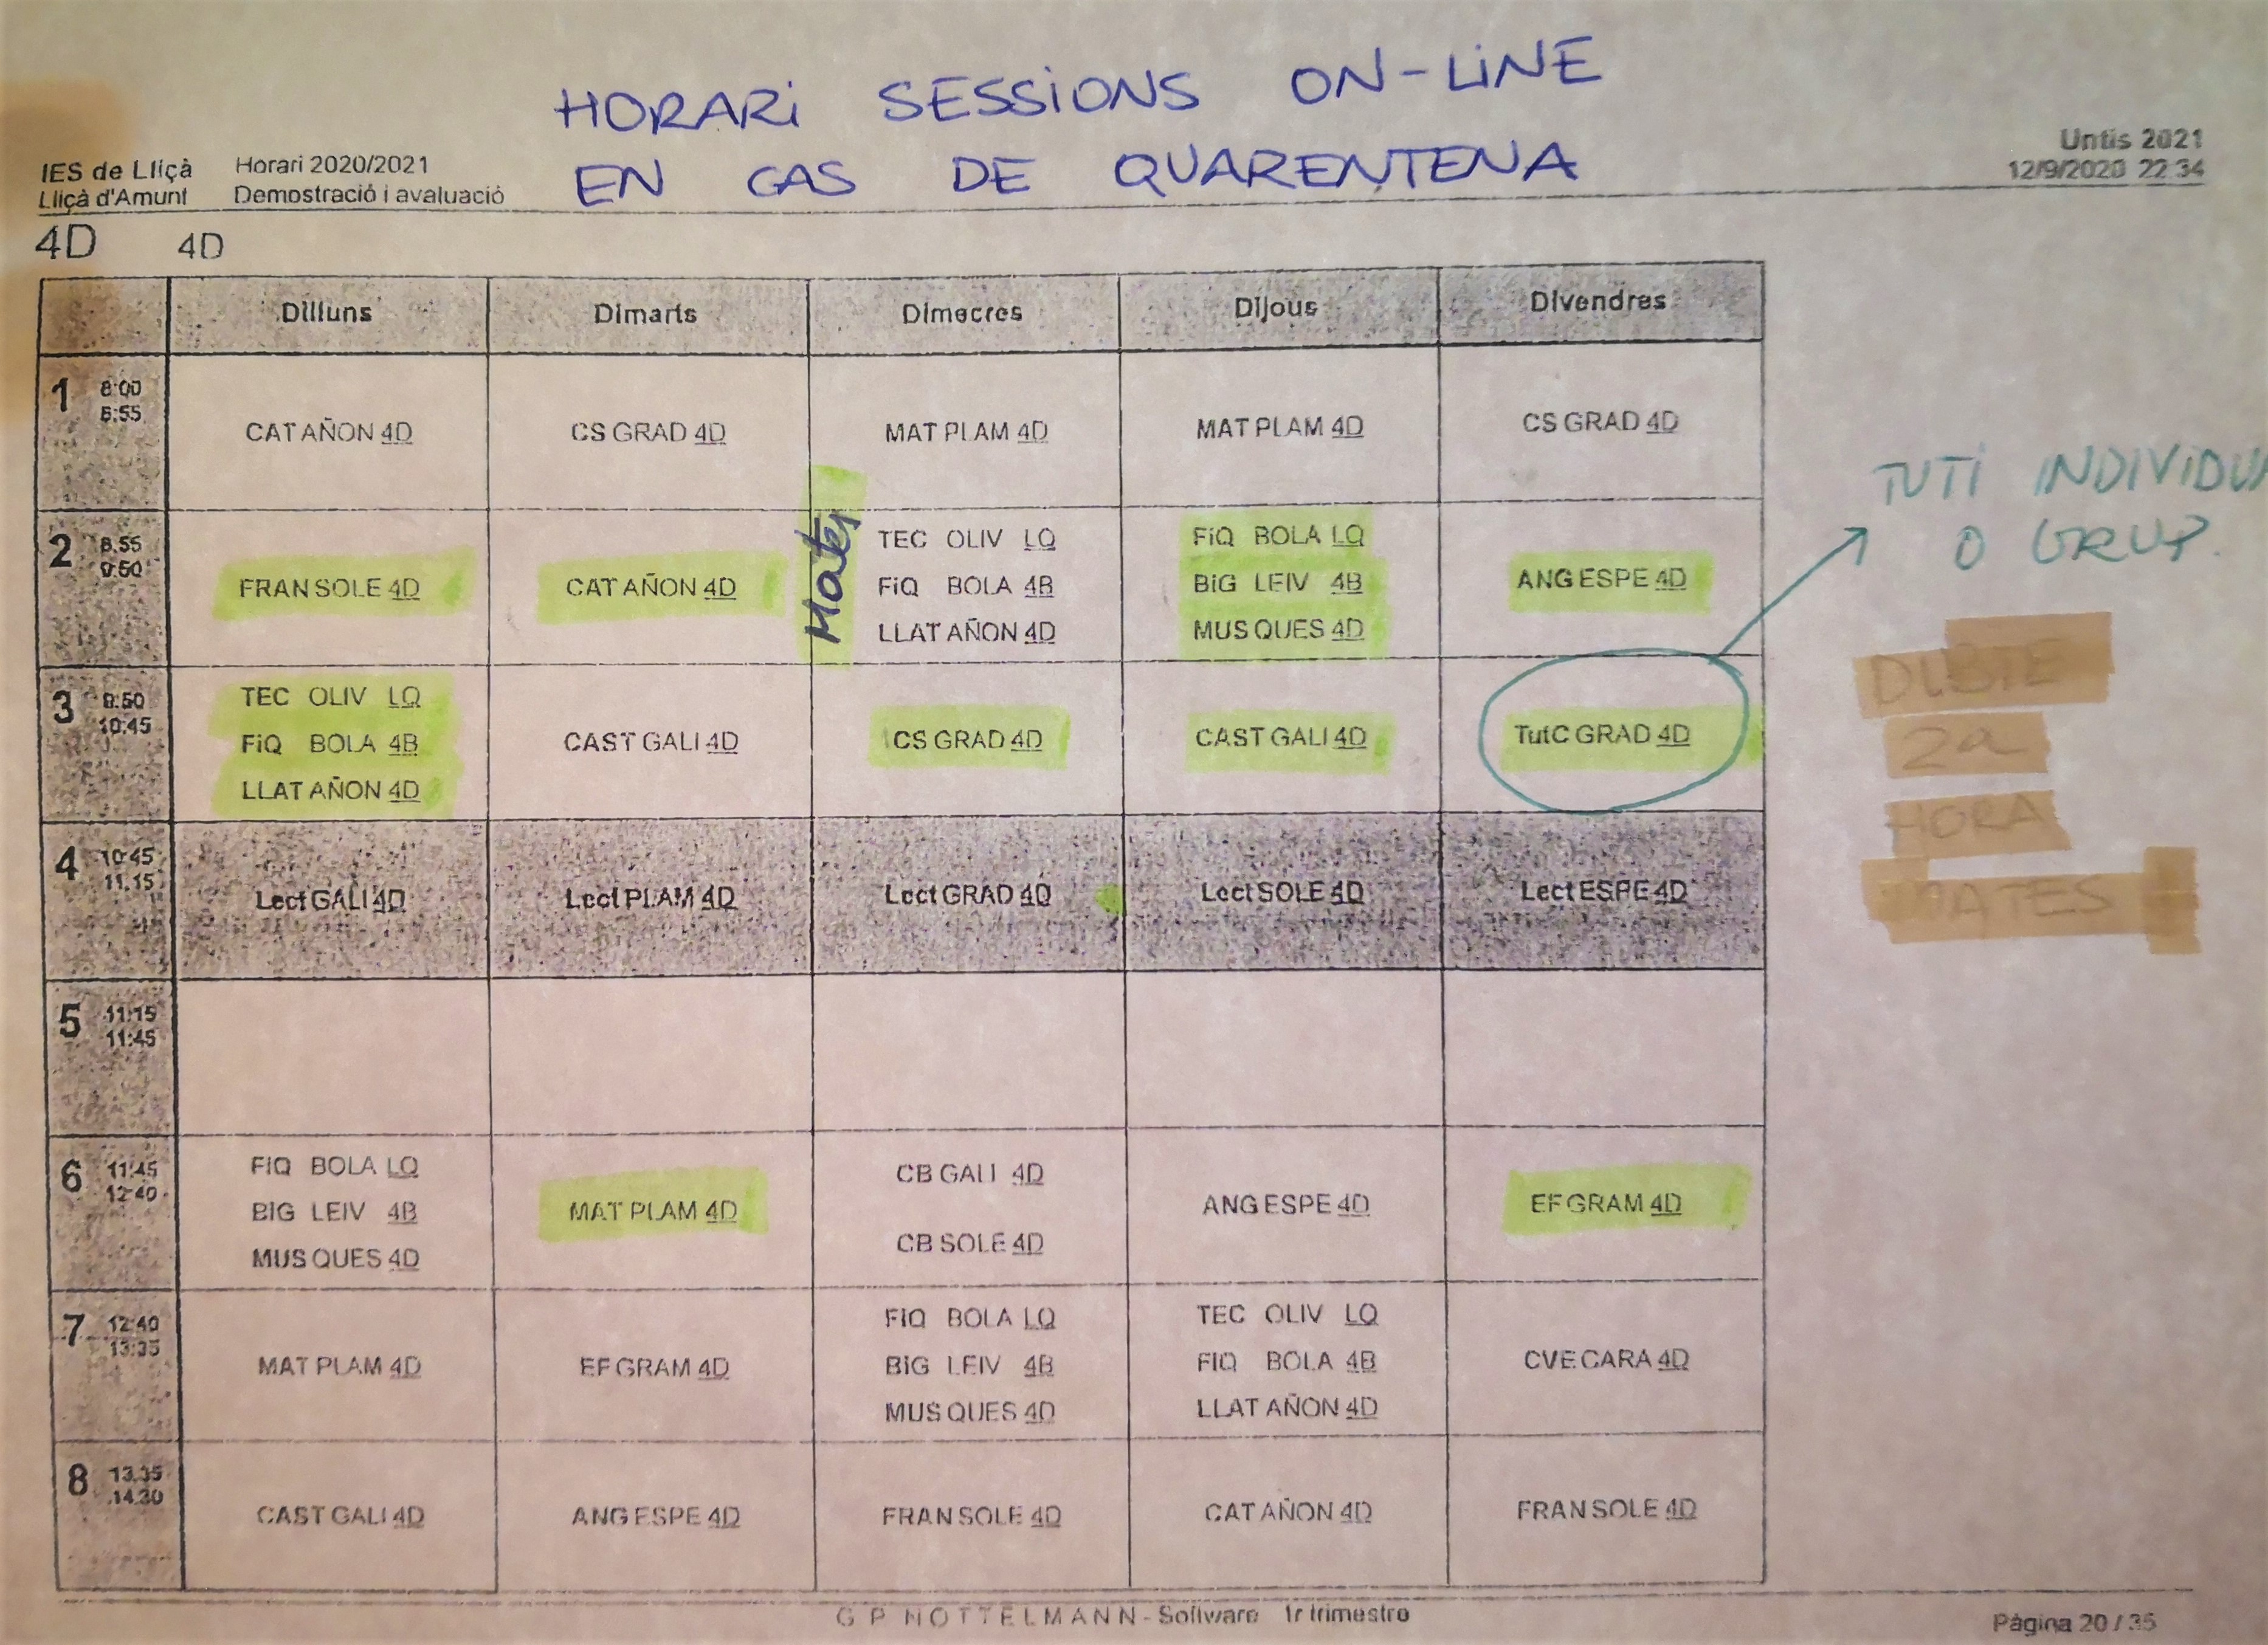 HORARI SESSIONS ON-LINE
EN CAS DE QUARENTENA
IES de Lliçà Horari 2020/2021 Untis 2021
Lliçà d'Amunt Demostració i avaluació 12/9/2020 22:34
4D 4D
Dilluns Dimarts Dimecres Dijous Divendres
1 8:00
8:55
CAT AÑON 4D CS GRAD 4D MAT PLAM 4D MAT PLAM 4D CS GRAD 4D
TUTI INDIVIDUA
O GRUP.
2 8:55
9:50
FRAN SOLE 4D
CAT AÑON 4D
Mates
TEC OLIV LQ
FiQ BOLA 4B
LLAT AÑON 4D
FiQ BOLA LQ
BiG LEIV 4B
MUS QUES 4D
ANG ESPE 4D
3 9:50
10:45
TEC OLIV LQ
FiQ BOLA 4B
LLAT AÑON 4D
CAST GALI 4D
CS GRAD 4D
CAST GALI 4D
TutC GRAD 4D
2a
HORA
MATES
4 10:45
11:15
Lect GALI 4D Lect PLAM 4D Lect GRAD 4D Lect SOLE 4D Lect ESPE 4D
5 11:15
11:45
6 11:45
12:40
FiQ BOLA LQ
BiG LEIV 4B
MUS QUES 4D
MAT PLAM 4D
CB GALI 4D
CB SOLE 4D
ANG ESPE 4D
EF GRAM 4D
7 12:40
13:35
MAT PLAM 4D
EF GRAM 4D
FiQ BOLA LQ
BiG LEIV 4B
MUS QUES 4D
TEC OLIV LQ
FiQ BOLA 4B
LLAT AÑON 4D
CVE CARA 4D
8 13:35
14:30
CAST GALI 4D ANG ESPE 4D FRAN SOLE 4D CAT AÑON 4D FRAN SOLE 4D
G P NOTTELMANN - Software 1r trimestre
Pàgina 20 / 35